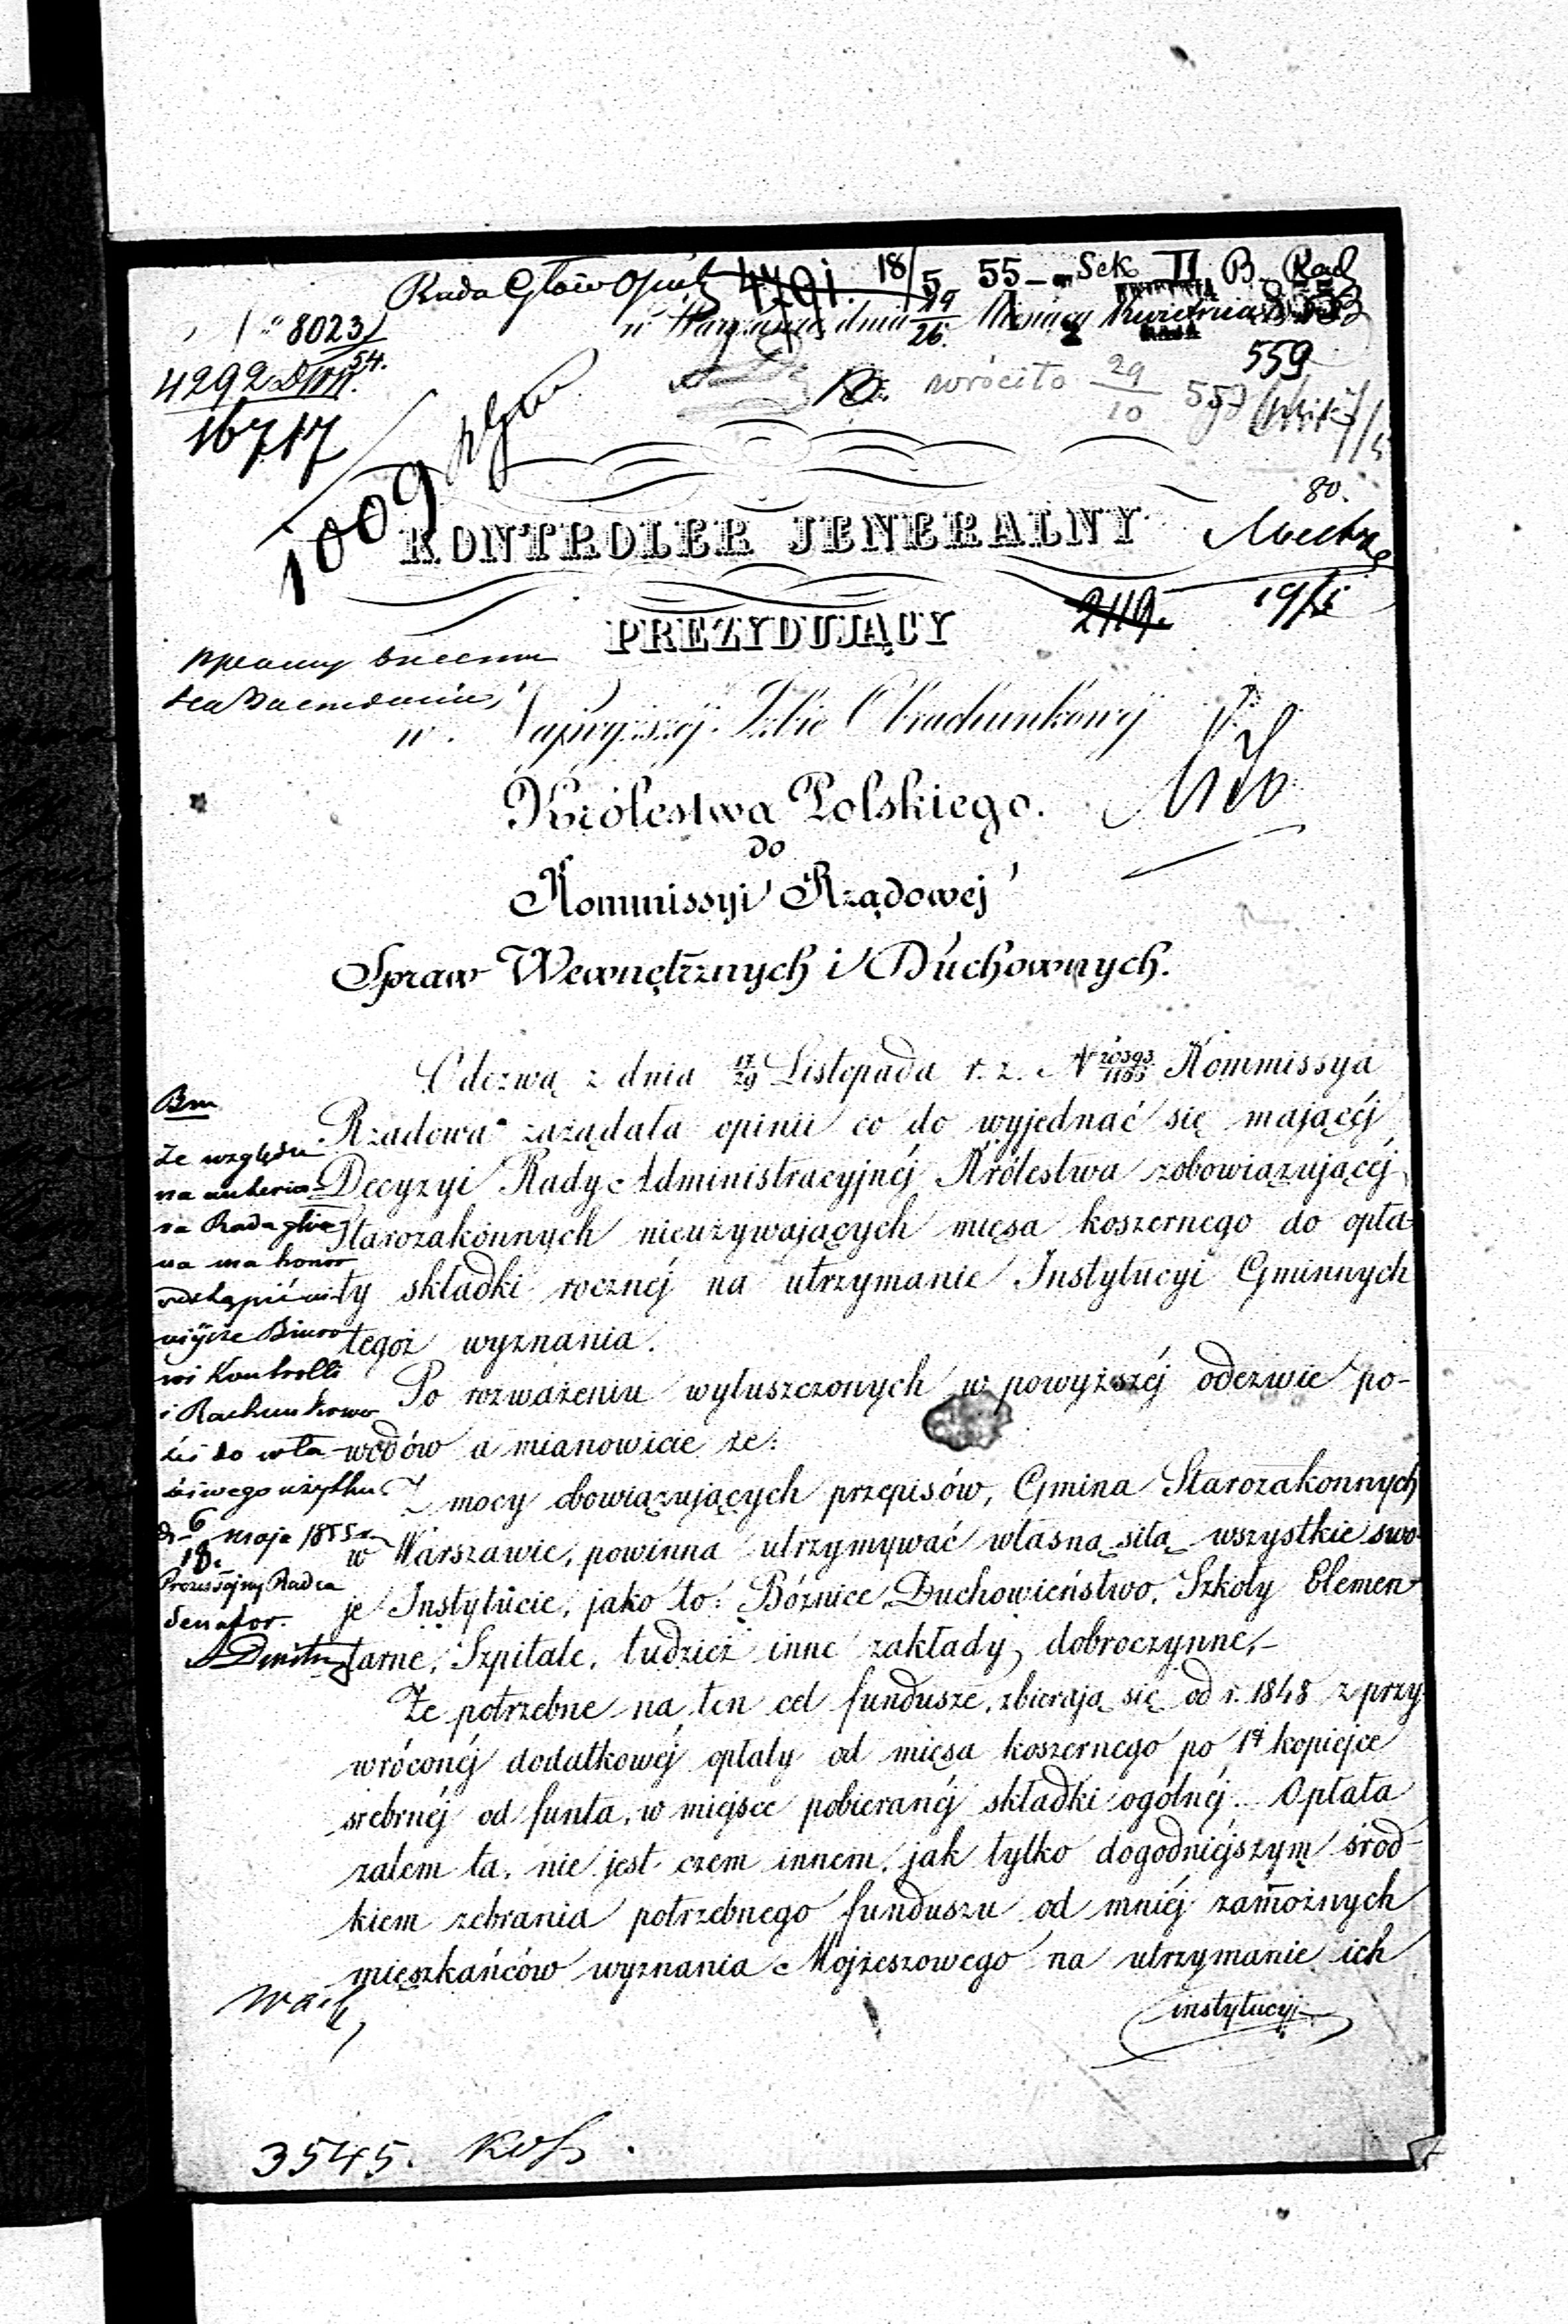 Rada Głów Opiek 4791. 18/5 55 - Sek II B. Rad
8023/54.
w Warszawie dnia 14/26 Miesiąca Kwietnia
4292
559
16717
wróciło 29/10
1009
80.
KONTROLER JENERALNY
2119.
PREZYDUJĄCY
w Najwyższej Izbie Obrachunkowej
Królestwa Polskiego.
do
Kommissyi Rządowej
Spraw Wewnętrznych i Duchownych.
Odezwą z dnia 17/29 Listopada r. z. N Kommissya
Rządowa zażądała opinii co do wyjednać się mającéj
Decyzyi Rady Administracyjnéj Królestwa zobowiązującéj
Starozakonnych nieużywających mięsa koszernego do opła-
ty składki rocznéj na utrzymanie Instytucyi Gminnych
tegoż wyznania.
Po rozważeniu wyłuszczonych w powyższéj odezwie po-
wodów a mianowicie że:
Z mocy obowiązujących przepisów, Gmina Starozakonnych
w Warszawie, powinna utrzymywać własną siłą wszystkie swo-
je Instytucie, jako to: Bóżnice, Duchowieństwo, Szkoły Elemen-
tarne, Szpitale, tudzież inne zakłady dobroczynne,-
Że potrzebne na ten cel fundusze, zbierają się od r. 1848 z przy-
wróconéj dodatkowéj opłaty od mięsa koszernego po 1éj kopiejce
srebrnéj od funta, w miejsce pobieranéj składki ogólnéj. Opłata
zatem ta, nie jest czem innem, jak tylko dogodniejszym środ-
kiem zebrania potrzebnego funduszu od mniéj zamożnych
mieszkańców wyznania Mojżeszowego na utrzymanie ich
instytucyj
Bm
Ze względu
na Rada głów
na ma honor
odstąpić ni-
niéjsze Biuro
wi Kontrolli
i Rachunkowo
ści do wła
ściwego użytku
d. 6/18. maja 1855 r.
Prezydujący Radca
Senator.
3545.